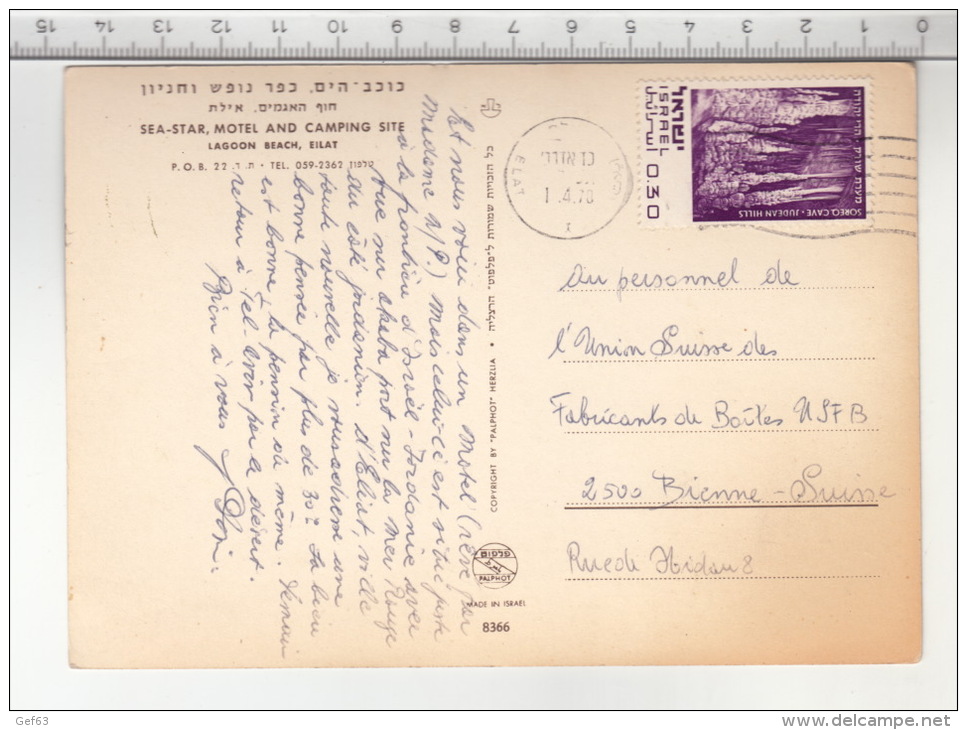 15 14 13 12 11 10 9 8 7 6 5 4 3 2 1 0
כוכב-הים, כפר נופש וחניון
חוף האגמים, אילת
SEA-STAR, MOTEL AND CAMPING SITE
LAGOON BEACH, EILAT
P.O.B. 22 ת.ד. • TEL. 059-2362 טלפון
Et nous voici dans un Motel (rêvé par
Madame N/P.) Mais celui-ci est situé juste
à la frontière d'Israël-Jordanie avec
vue sur Akaba port sur la mer Rouge
du côté jordanien. d'Eliat, ville
toute nouvelle je vous adresse une
bonne pensée par plus de 30° La bière
est bonne, la pension de même. Demain
retour à Tel-Aviv par le désert.
Bien à vous
כל הזכויות שמורות ל"פלפוט" הרצליה • COPYRIGHT BY "PALPHOT" HERZLIA
פלפוט
PALPHOT
MADE IN ISRAEL
8366
ELAT
1.4.78
ישראל
ISRAEL
اسرائيل
0.30
SOREQ CAVE • JUDEAN HILLS
Au personnel de
l'Union Suisse des
Fabricants de Boîtes USFB
2500 Bienne-Suisse
Rue de Nidau 8
Gef63
delcampe.net